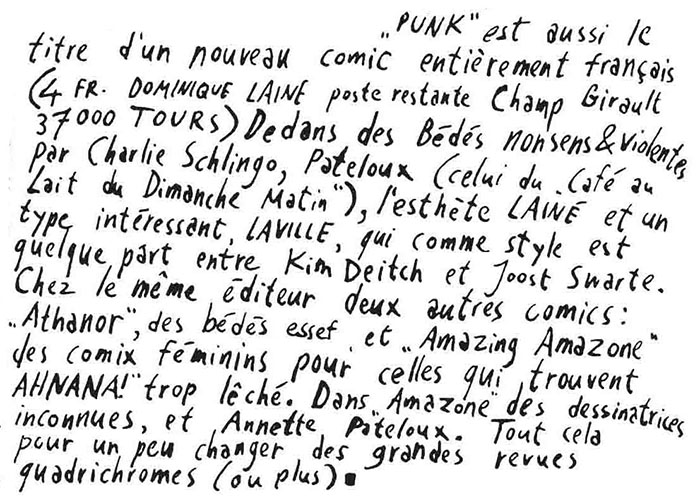 „PUNK" est aussi le
titre d'un nouveau comic entièrement français
(4 FR. DOMINIQUE LAINÉ poste restante Champ Girault
37000 TOURS) Dedans des Bédés nonsens & violentes
par Charlie Schlingo, Pateloux (celui du „Café au
Lait du Dimanche Matin"), l'esthète LAINÉ et un
type intéressant, LAVILLE, qui comme style est
quelque part entre Kim Deitch et Joost Swarte.
Chez le même éditeur deux autres comics:
„Athanor", des bédés essef et „Amazing Amazone"
des comix féminins pour celles qui trouvent
AHNANA!" trop lêché. Dans „Amazone" des dessinatrices
inconnues, et Annette Pateloux. Tout cela
pour un peu changer des grandes revues
quadrichromes (ou plus).